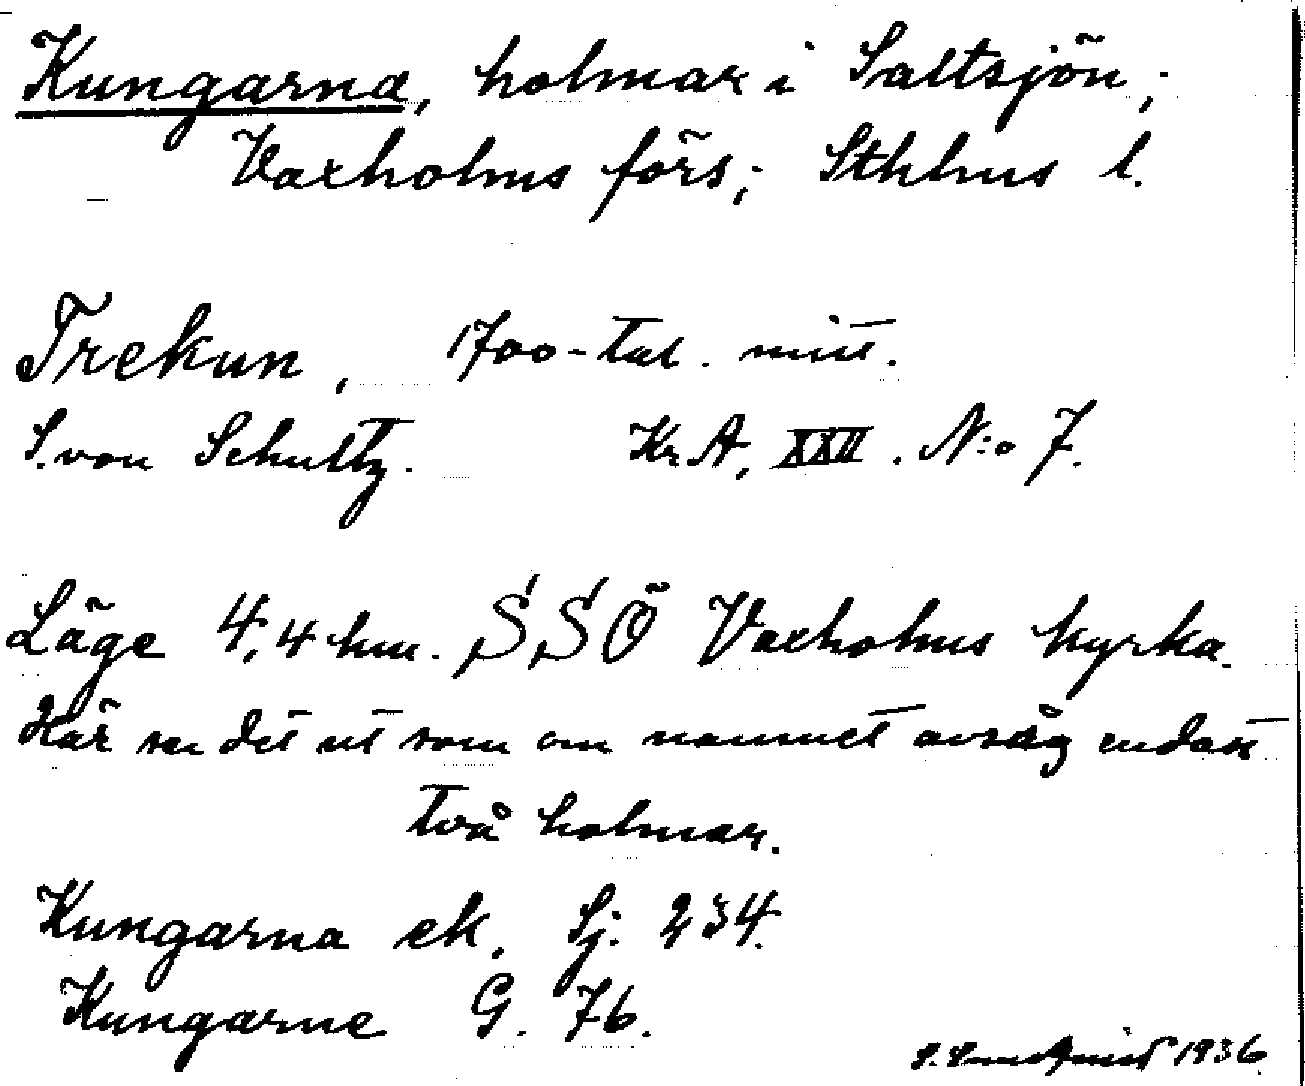 Kungarna, holmar i Saltsjön;
Vaxholms förs; Sthlms l.
Trekun, 1700-tal. mitt.
S. von Schultz. Kr.A, XXII. N:o 7.
Läge 4,4 km. SSÖ Vaxholms kyrka.
Här ser det ut som om namnet avsåg endast
två holmar.
Kungarna ek. Sj. 234.
Kungarne G. 76.
1936